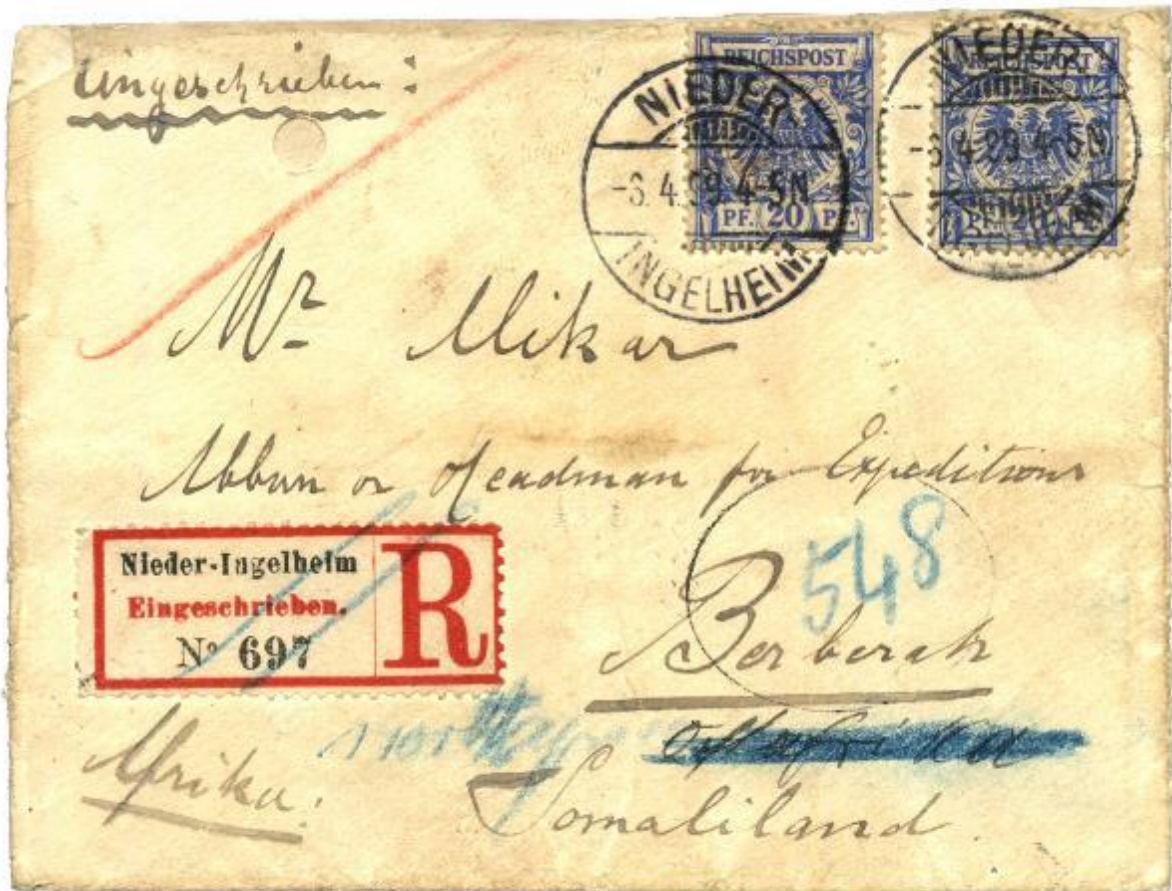 Eingeschrieben:
REICHSPOST
PF. 20 PF.
NIEDER-
-6.4.99.4-5N
INGELHEIM
REICHSPOST
PF. 20 PF.
NIEDER-
-6.4.99.4-5N
Mr Mikar
Abban or Headman for Expeditions
Nieder-Ingelheim
Eingeschrieben.
No 697
R
548
Berberah
Ostafrika
Afrika.
Somaliland.